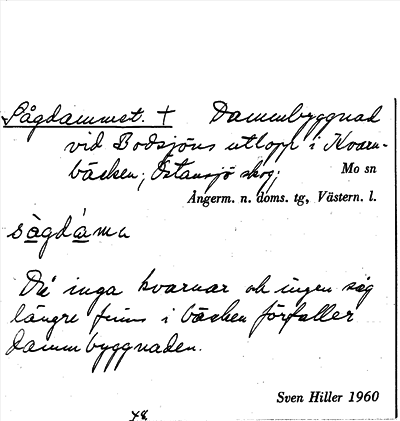 Sågdammet. † Dammbyggnad
vid Bodsjöns utlopp i Kvarn-
bäcken; Östansjö skog;
Mo sn
Ångerm. n. doms. tg, Västern. l.
sågdáma
Då inga kvarnar och ingen såg
längre finns i bäcken förfaller
dammbyggnaden.
Sven Hiller 1960
48